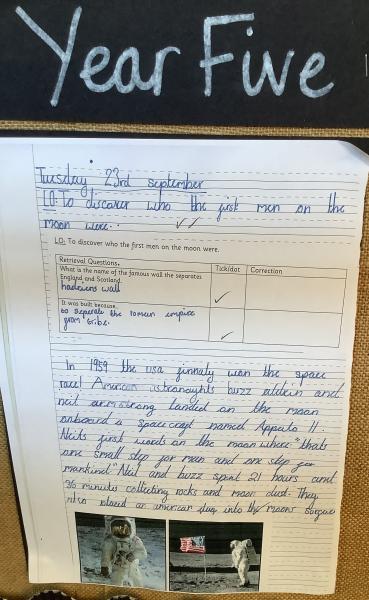 Year Five
Tuesday 23rd september
LO: To discover who the first men on the
moon were.
LO: To discover who the first men on the moon were.
Retrieval Questions. Tick/dot Correction
What is the name of the famous wall the separates
England and Scotland.
hadriens wall
It was built because
to seperate the roman empire
from tribe.
In 1959 the usa finnaly won the space
race! American astronaghts buzz aldrin and
neil armstrong landed on the moon
onboard a spacecraft named Appollo 11.
Neils first words on the moon where "thats
one small step for man and one step for
mankind" Neil and buzz spent 21 hours and
36 minutes collecting rocks and moon dust. They
also placed an american flag into the moons